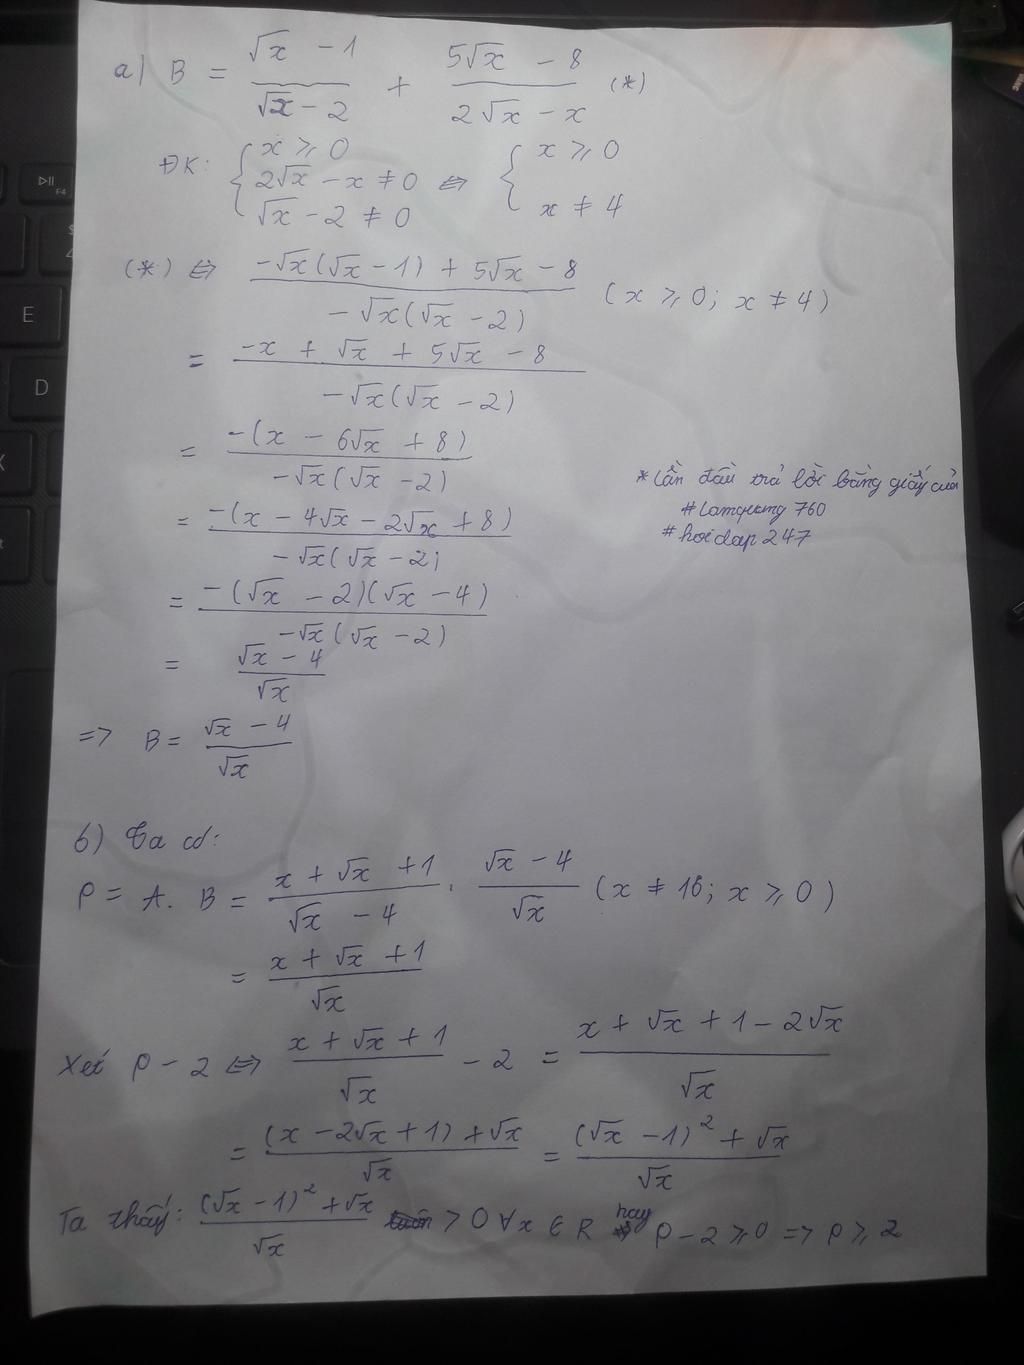 a) B = (√x - 1)/(√x - 2) + (5√x - 8)/(2√x - x) (*)
ĐK: { x ≥ 0 ; 2√x - x ≠ 0 ; √x - 2 ≠ 0 ⇔ { x ≥ 0 ; x ≠ 4
(*) ⇔ (-√x(√x - 1) + 5√x - 8)/(-√x(√x - 2)) (x ≥ 0; x ≠ 4)
= (-x + √x + 5√x - 8)/(-√x(√x - 2))
= (-(x - 6√x + 8))/(-√x(√x - 2))
= (-(x - 4√x - 2√x + 8))/(-√x(√x - 2))
= (-(√x - 2)(√x - 4))/(-√x(√x - 2))
= (√x - 4)/√x
=> B = (√x - 4)/√x
* Lần đầu trả lời bằng giấy của
#lamquang760
#hoidap247
b) Ta có:
P = A. B = (x + √x + 1)/(√x - 4) . (√x - 4)/√x (x ≠ 16; x ≥ 0)
= (x + √x + 1)/√x
Xét P - 2 ⇔ (x + √x + 1)/√x - 2 = (x + √x + 1 - 2√x)/√x
= ((x - 2√x + 1) + √x)/√x = ((√x - 1)² + √x)/√x
Ta thấy: ((√x - 1)² + √x)/√x > 0 ∀x ∈ R hay P - 2 ≥ 0 => P ≥ 2
F4
E
D